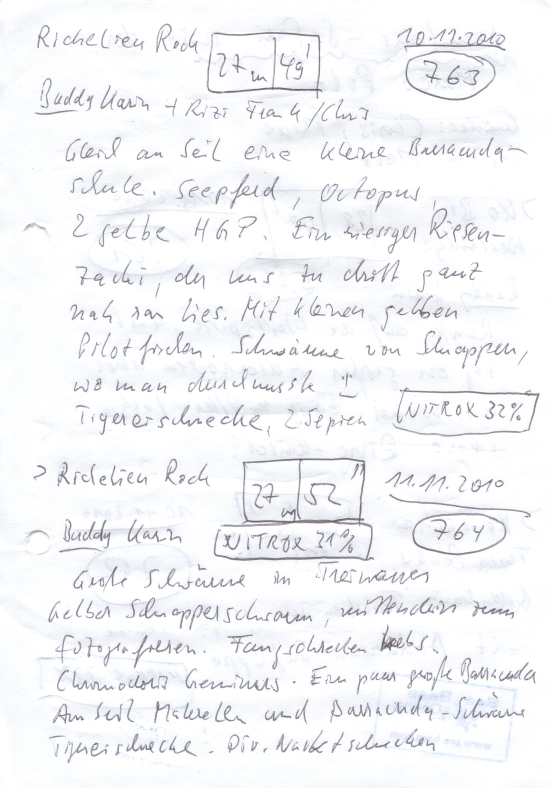 Richelieu Rock 27m 49' 10.11.2010
763
Buddy Karin + Rizi Frank/Chris
Gleich am Seil eine kleine Barracuda-
schule. Seepferd, Octopus,
2 gelbe HGF. Ein riesiger Riesen-
zacki, der uns zu dritt ganz
nah ran lies. Mit kleinen gelben
Pilotfischen. Schwärme von Schnappern,
wo man durchmusste
Tigerschnecke, 2 Sepien NITROX 32%
> Richelieu Rock 27m 52" 11.11.2010
Buddy Karin NITROX 31% 764
Große Schwärme im Freiwasser
Gelber Schnapperschwarm, mittendrin zum
fotografieren. Fangschreckenkrebs.
Chromodoris Geminus. Ein paar große Barracuda
Am Seil Makrelen und Barracuda-Schwärme
Tigerschnecke. Div. Nacktschnecken